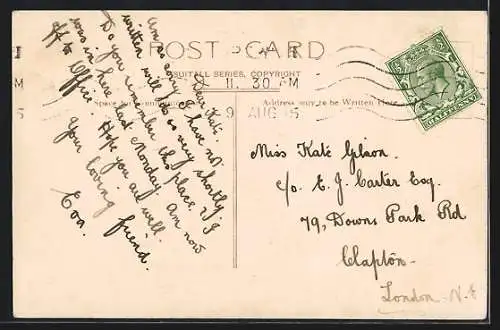 POST CARD
SUITALL SERIES, COPYRIGHT
11. 30 AM
9 AUG 15
Address only to be Written Here
HALFPENNY
Dear Kate
Am so sorry I have not
written will do so very shortly
Do you remember this place? I
was in here last Monday. Am now
off to Office. Hope you are well.
Your loving friend.
Eva.
Miss Kate Gibson.
c/o. E. J. Carter Esq.
79, Downs Park Rd
Clapton.
London. N.E